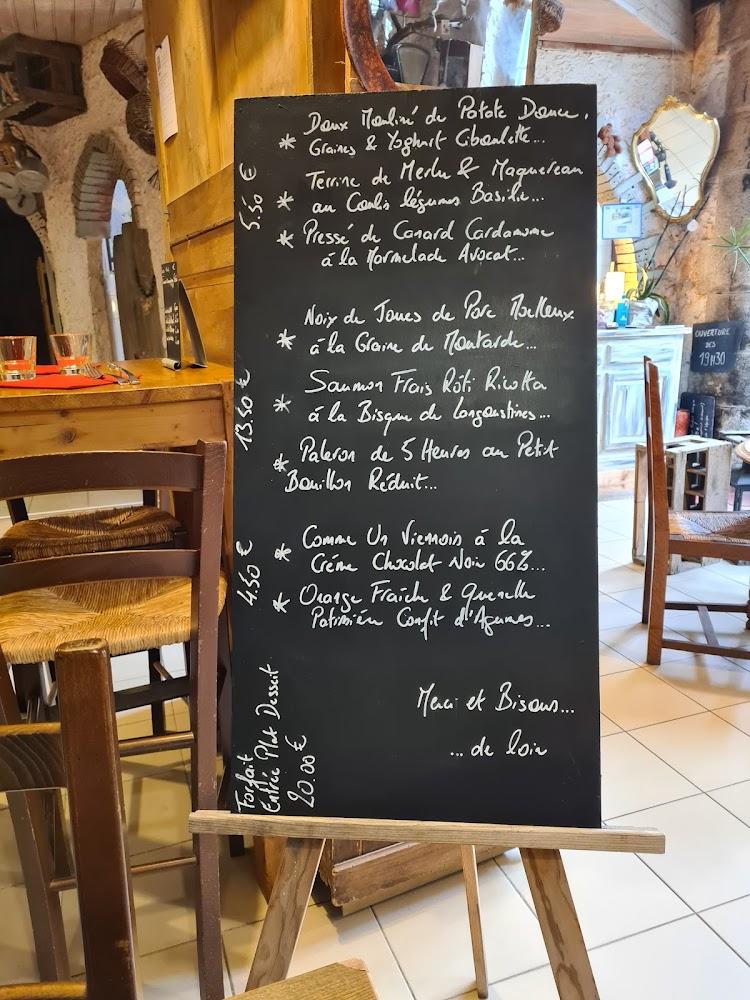 * Doux Mouliné de Patate Douce,
Graines & Yoghurt Ciboulette...
5.50 €
* Terrine de Merlu & Maquereau
au Coulis légumes Basilic...
* Pressé de Canard Cardamome
à la Marmelade Avocat...
* Noix de Joues de Porc Moelleux
à la Graine de Moutarde...
13.50 €
* Saumon Frais Rôti Ricotta
à la Bisque de langoustines...
* Paleron de 5 Heures au Petit
Bouillon Réduit...
4.50 €
* Comme Un Viennois à la
Crème Chocolat Noir 66%...
* Orange Fraîche & Quenelle
Patissière Confit d'Agrumes...
Forfait
Entrée Plat Dessert
20.00 €
Merci et Bisous...
... de loin
OUVERTURE
DES
19H30